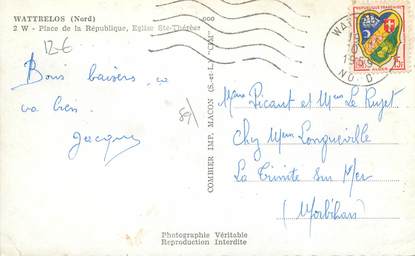 WATTRELOS (Nord)
2 W - Place de la République, Eglise Ste-Thérèse
12 €
Bons baisers
va bien.
Jacques
80/
COMBIER IMP. MACON (S.-et-L.) "CIM"
15F
1959
NORD
Mme Picaut et Mme Le
Chez Mme Longueville
La Trinité sur Mer
(Morbihan)
Photographie Véritable
Reproduction Interdite